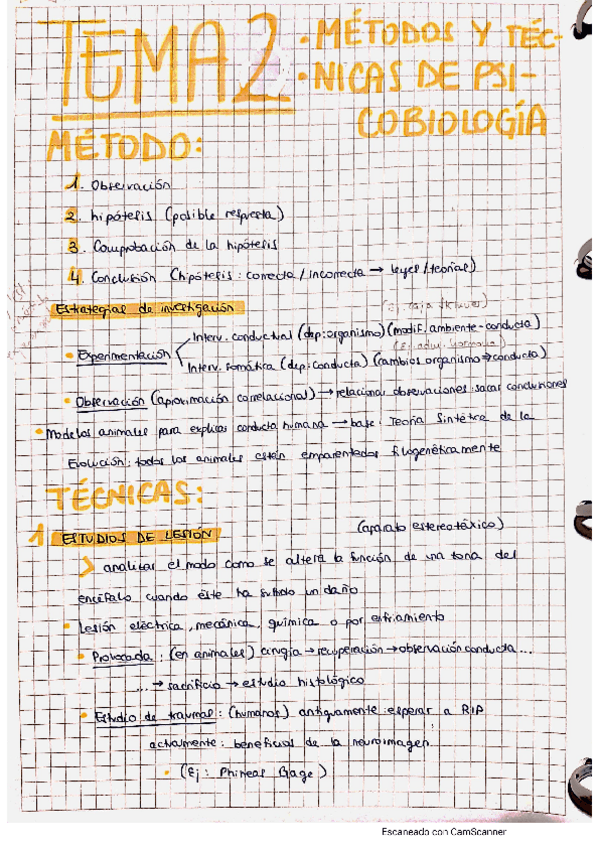 TEMA 2 · MÉTODOS Y TÉC-
· NICAS DE PSI-
COBIOLOGÍA
MÉTODO:
1. Observación
2. hipótesis (posible respuesta)
3. Comprobación de la hipótesis
4. Conclusión (hipótesis: correcta / incorrecta → leyes / teorías)
Estrategias de investigación
(ej. caja Skinner)
· Experimentación
Interv. conductual (dep: organismo) (modif. ambiente - conducta)
Interv. somática (dep: conducta) (cambios organismo → conducta)
· Observación (aproximación correlacional) → relacionar observaciones: sacar conclusiones
· Modelos animales para explicar conducta humana → base: Teoría Sintética de la
Evolución: todos los animales están emparentados filogenéticamente
TÉCNICAS:
1 ESTUDIOS DE LESIÓN (aparato estereotáxico)
> analizar el modo como se altera la función de una zona del
encéfalo cuando éste ha sufrido un daño
· Lesión eléctrica, mecánica, química o por enfriamiento
· Provocada: (en animales) cirugía → recuperación → observación conducta...
... → sacrificio → estudio histológico
· Estudio de traumas: (humanos) antiguamente: esperar a RIP
actualmente: beneficios de la neuroimagen
· (Ej: Phineas Gage)
Escaneado con CamScanner